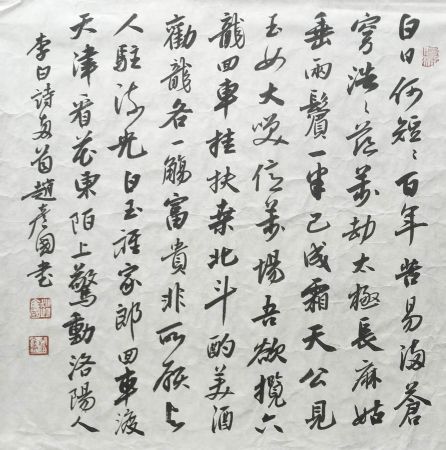 白日何短〻百年苦易滿蒼
穹浩〻茫萬劫太極長麻姑
垂兩鬢一半已成霜天公見
玉女大笑億萬場吾欲攬六
龍回車挂扶桑北斗酌美酒
勸龍各一觴富貴非所願與
人駐流光白玉誰家郎回車渡
天津看花東陌上驚動洛陽人
李白詩兩首趙彥國書